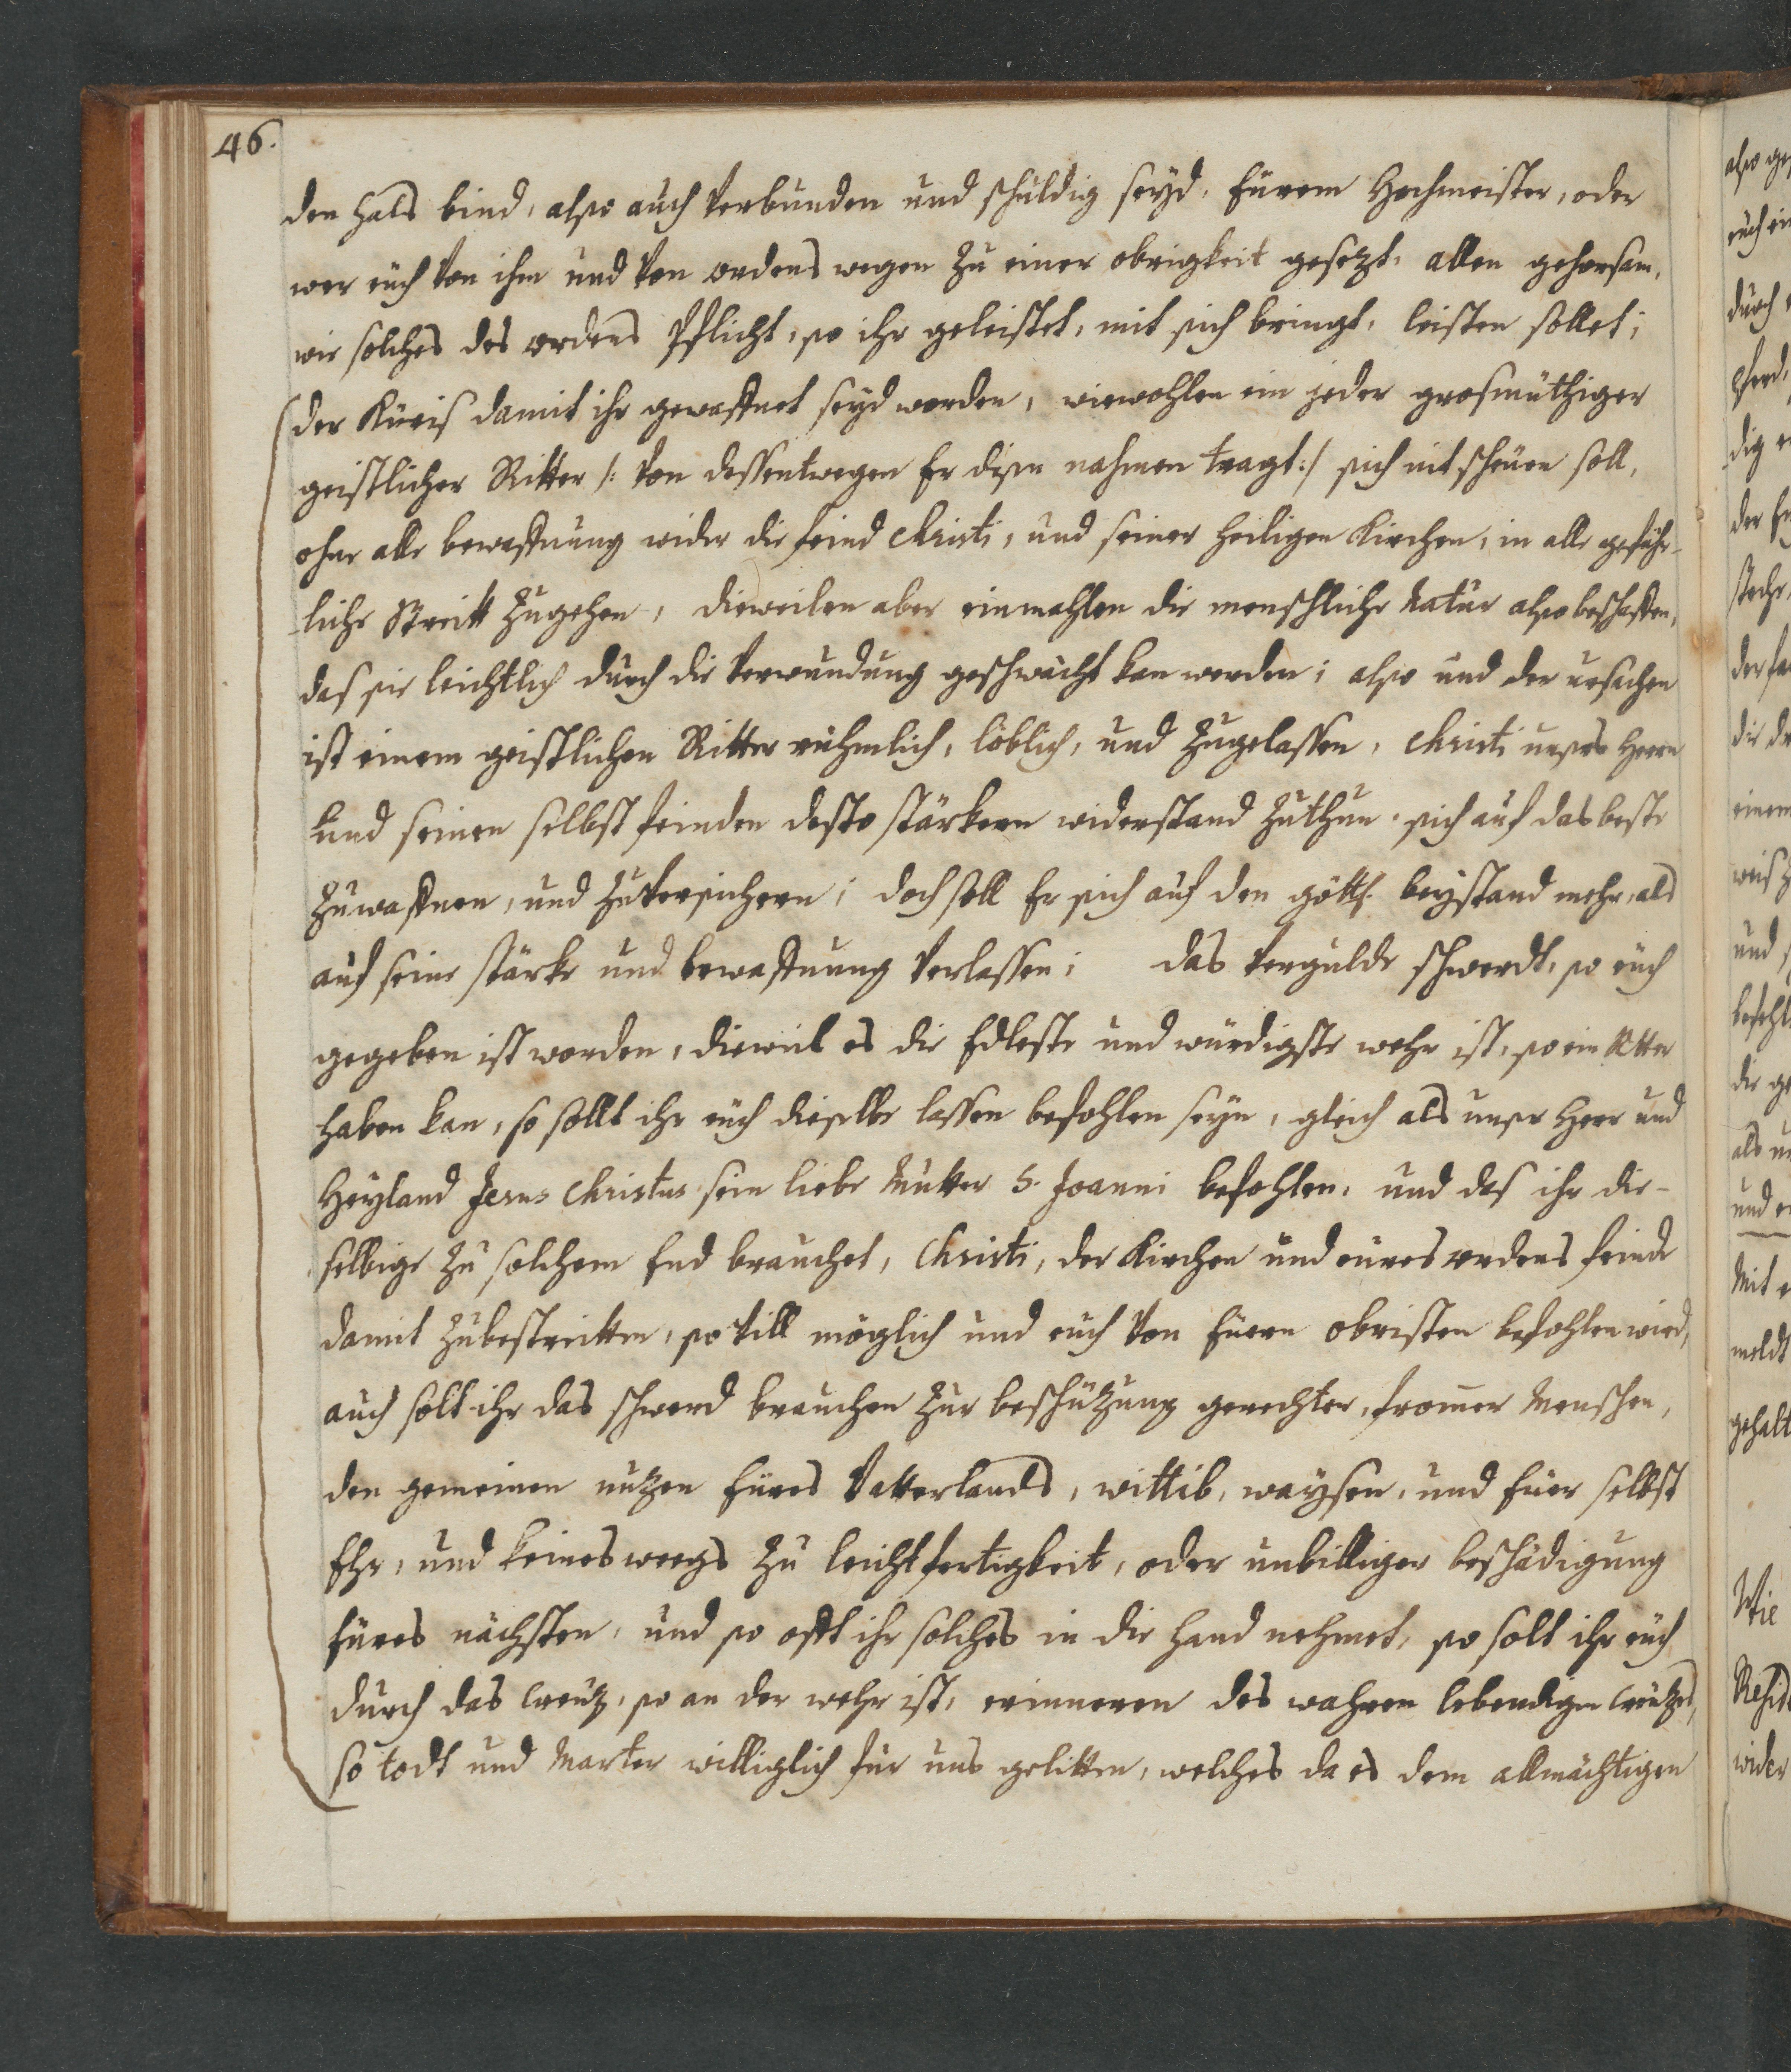 46.
den Hals bind, also auch verbunden und schuldig seyd, Eürem Hochmeister, oder
wer eüch von ihm und von ordens wegen zu einer obrigkeit gesetzt, allen gehorsam,
wie solches des ordens Pflicht, so ihr geleistet, mit sich bringt, leisten sollet;
der Küris damit ihr gewaffnet seyd worden, wiewohlen ein jeder grosmüthiger
geistlicher Ritter /: von dessentwegen Er disen nahmen tragt :/ sich nit scheüen soll,
ohne alle bewaffnung wider die feind Christi, und seiner heiligen Kirchen, in alle gefähr-
liche Streitt zugehen, dieweilen aber einmahlen die menschliche Natur also beschaffen,
das sie leichtlich durch die verwundung geschwächt kan werden; also und der ursachen
ist einem geistlichen Ritter rühmlich, löblich, und zugelassen, Christi unsers Herrn
und seinen selbst feinden desto stärkern widerstand zuthun, sich auf das beste
zuwaffnen, und zuversichern; doch soll Er sich auf den göttl. beystand mehr, als
auf seine stärke und bewaffnung verlassen; das vergulde schwerdt, so eüch
gegeben ist worden, dieweil es die Edleste und würdigste wehr ist, so ein Ritter
haben kan, so sollt ihr eüch dieselbe lassen befohlen seyn, gleich als unser Herr und
Heyland Jesus Christus sein liebe Mutter S. Joanni befohlen, und das ihr die-
selbige zu solchem End brauchet, Christi, der Kirchen und eüres ordens feinde
damit zubestreitten, so vill möglich und euch von Eüern obristen befohlen wird,
auch solt ihr das schwerd brauchen zur beschützung gerechter, fromer Menschen,
den gemeinen nutzen Eüres Vatterlands, wittib, waysen, und Eüer selbst
Ehr, und keinesweegs zu leichtfertigkeit, oder unbilliger beschädigung
Eüres nächsten, und so offt ihr solches in die hand nehmet, so solt ihr eüch
durch das Creütz, so an der wehr ist, erinneren des wahren lebendigen Creützes,
so todt und Marter williglich für uns gelitten, welches da es dem allmächtigen